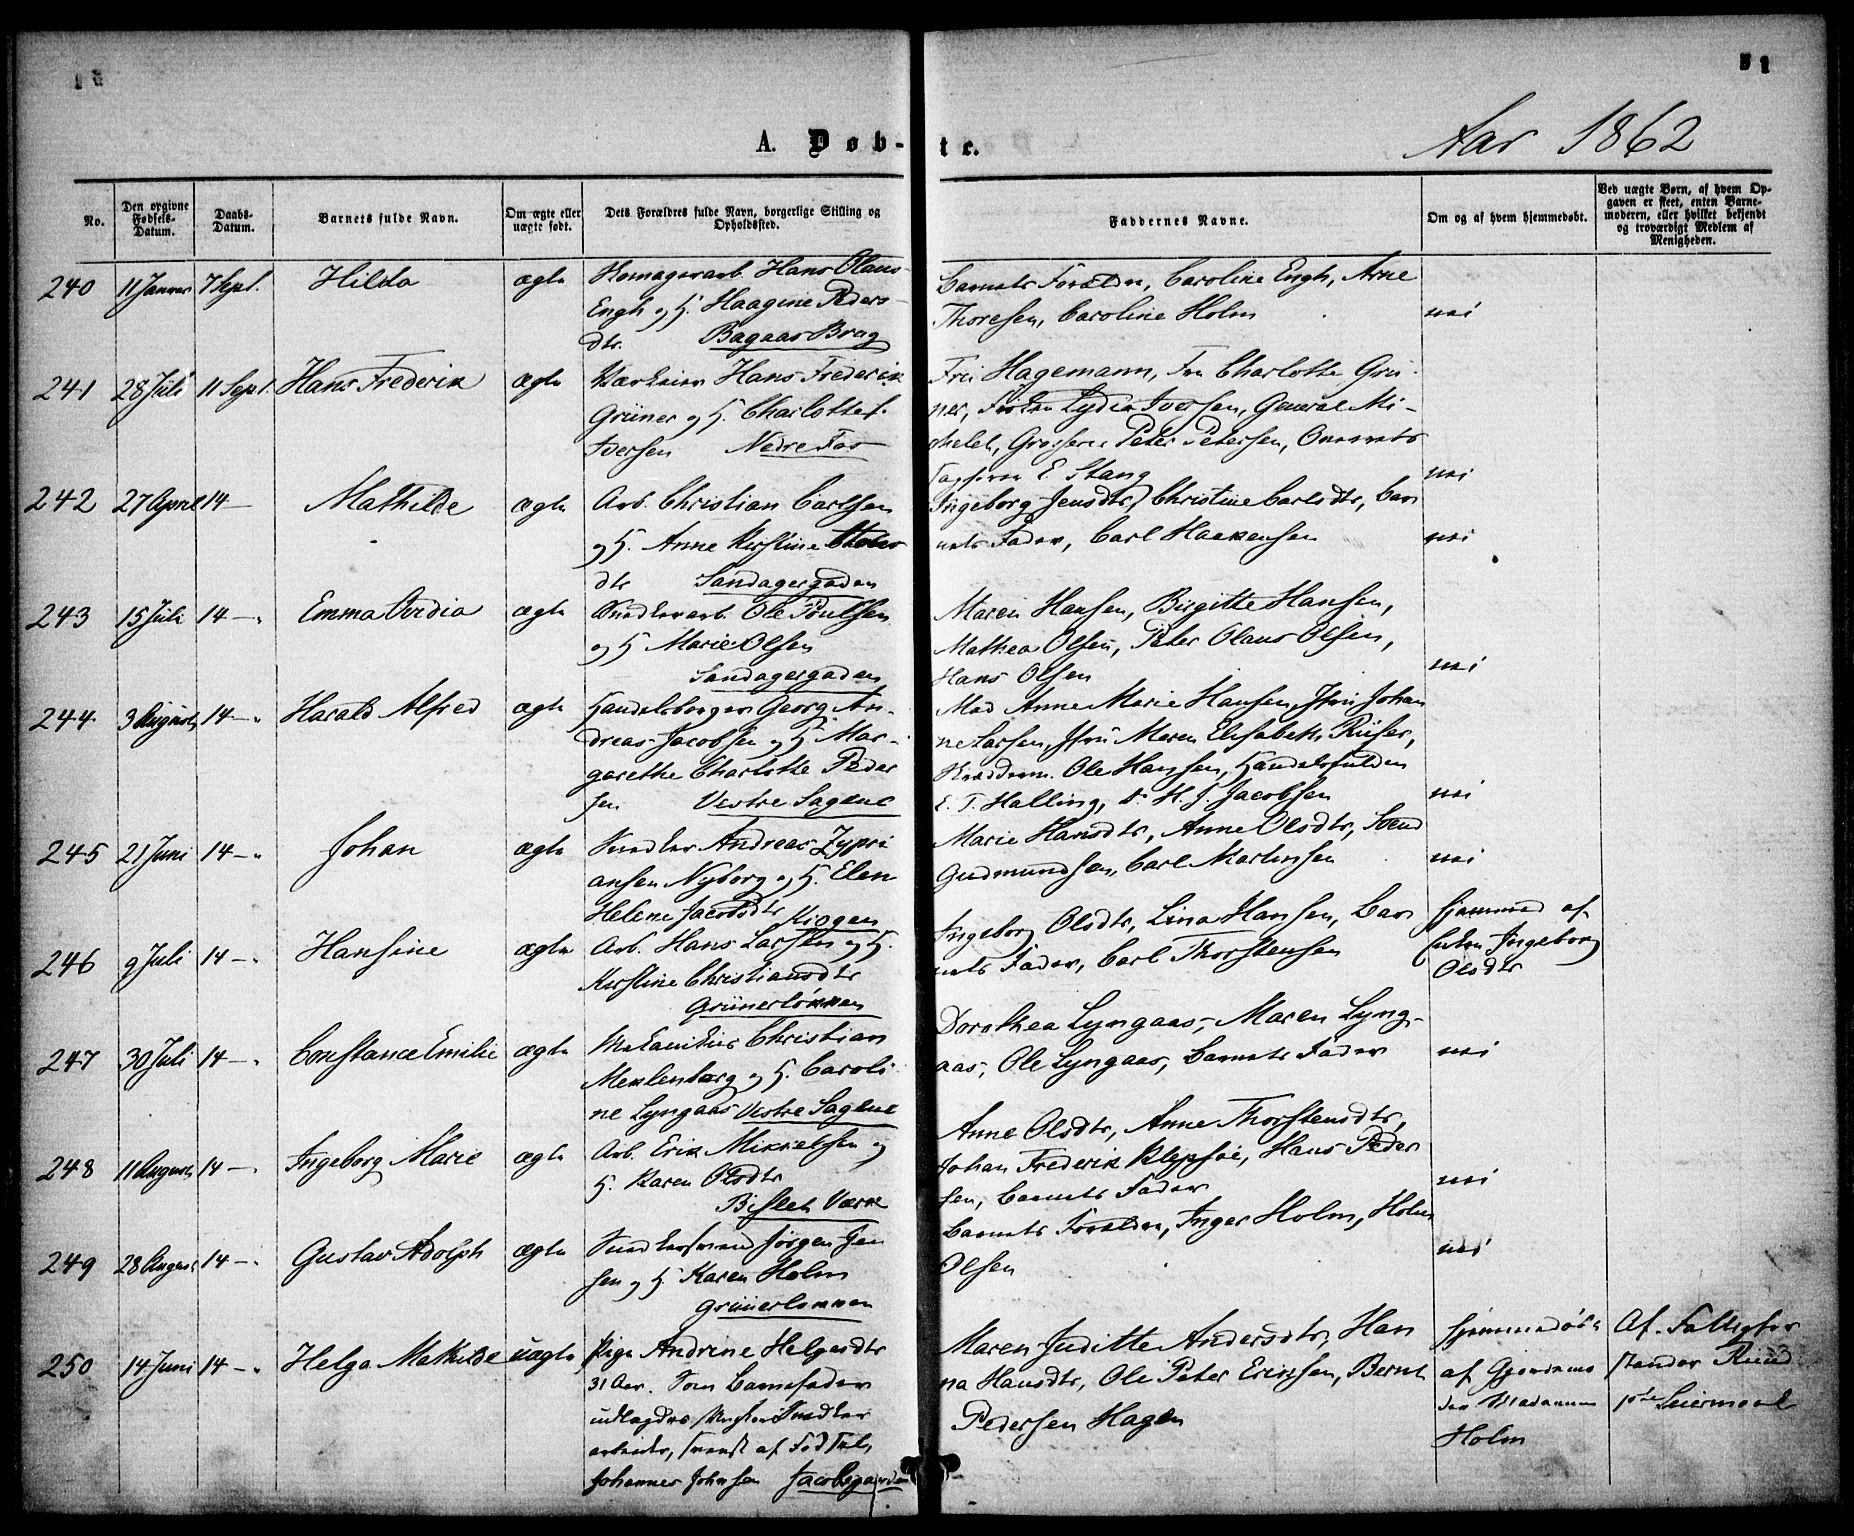 A. Døb-te.
Aar 1862
No.
Den opgivne Fødsels-Datum.
Daabs-Datum.
Barnets fulde Navn.
Om ægte eller uægte født.
Dets Forældres fulde Navn, borgerlige Stilling og Opholdssted.
Faddernes Navne.
Om og af hvem hjemmedøbt.
Ved uægte Børn, af hvem Opgaven er skeet, enten Barnemoderen, eller hvilket bekjendt og troværdigt Medlem af Menigheden.
240 11 Januar 7 Sept. Hilda ægte
Hans Olaus
Engh og H. Haagine Peders
dtr. Bagaas Brug
Barnets Forældre, Caroline Engh, Arne
Thoresen, Caroline Holm nei
241 28 Juli 11 Sept. Hans Frederik ægte
Hans Frederik
Grüner og H. Charlotte f.
Iversen Nedre Fos
Hagemann, Fru Charlotte Grü-
ner, Frøken Lydia Iversen, General Mi-
chelet, Grosserer Peter Petersen,
E. Stang nei
242 27 April 14 - Mathilde ægte
Arb. Christian Carlsen
og H. Anne Kirstine
dtr Sandagergaden
Ingeborg Jensdtr, Christine Carlsdtr, Bar
nets Fader, Carl Haakensen nei
243 15 Juli 14 - " Emma Ovidia ægte
Ole Poulsen
og H Marie Olsen
Sandagergaden
Maren Hansen, Birgitte Hansen,
Mathea Olsen, Peter Olaus Olsen,
Hans Olsen nei
244 3 August 14 - " Harald Alfred ægte
Handelsborger Georg An-
dreas Jacobsen og H. Mar-
garethe Charlotte Peder
sen Vestre Sagene
Mad Anne Marie Hansen, Jfru Johan
ne Larsen, Jfru Maren Elisabeth
Ole Hansen,
E. T. Halling, H. J. Jacobsen nei
245 21 Juni 14 - " Johan ægte
Snedker Andreas Zypri
ansen Nyborg og H. Elen
Helene Jacobsdtr Kiøgen
Marie Hansdtr, Anne Olsdtr, Svend
Gudmundsen, Carl Martinsen nei
246 9 Juli 14 - " Hansine ægte
Arb. Hans Larsen og H.
Kirstine Christiansdtr
Grünerløkken
Ingeborg Olsdtr, Lina Hansen, Bar
nets Fader, Carl Thorstensen
af
Ingeborg
Olsdtr
247 30 Juli 14 - " Constance Emilie ægte
Christian
Meklenborg og H. Caroli
ne Lyngaas Vestre Sagene
Dorothea Lyngaas, Maren Lyng-
aas, Ole Lyngaas, Barnets Fader nei
248 11 August 14 - " Ingeborg Marie ægte
Arb. Erik Mikkelsen og
H. Karen Olsdtr
Bislet Værk
Anne Olsdtr, Anne Thorstensdtr,
Johan Frederik Klepsøe, Hans Peder
sen, Barnets Fader nei
249 28 August 14 - " Gustav Adolph ægte
Snedkersvend Jørgen Jen
sen og H. Karen Holm
Grünerløkken
Barnets Forældre, Inger Holm,
Olsen nei
250 14 Juni 14 - " Helga Mathilde uægte
Pige Andrine Helgesdtr
31 Aar. Som Barnefader
udlagdes Snedker
arbeider,
Johannes Johnsen Jacobsgaarden
Maren Juditte Andersdtr, Han
na Hansdtr, Ole Peter Ericksen, Bernt
Pedersen Hagen
hjemmedøbt
af Gjordemo
der Madamme
Holm
Af Fattigfor
stander Ruud